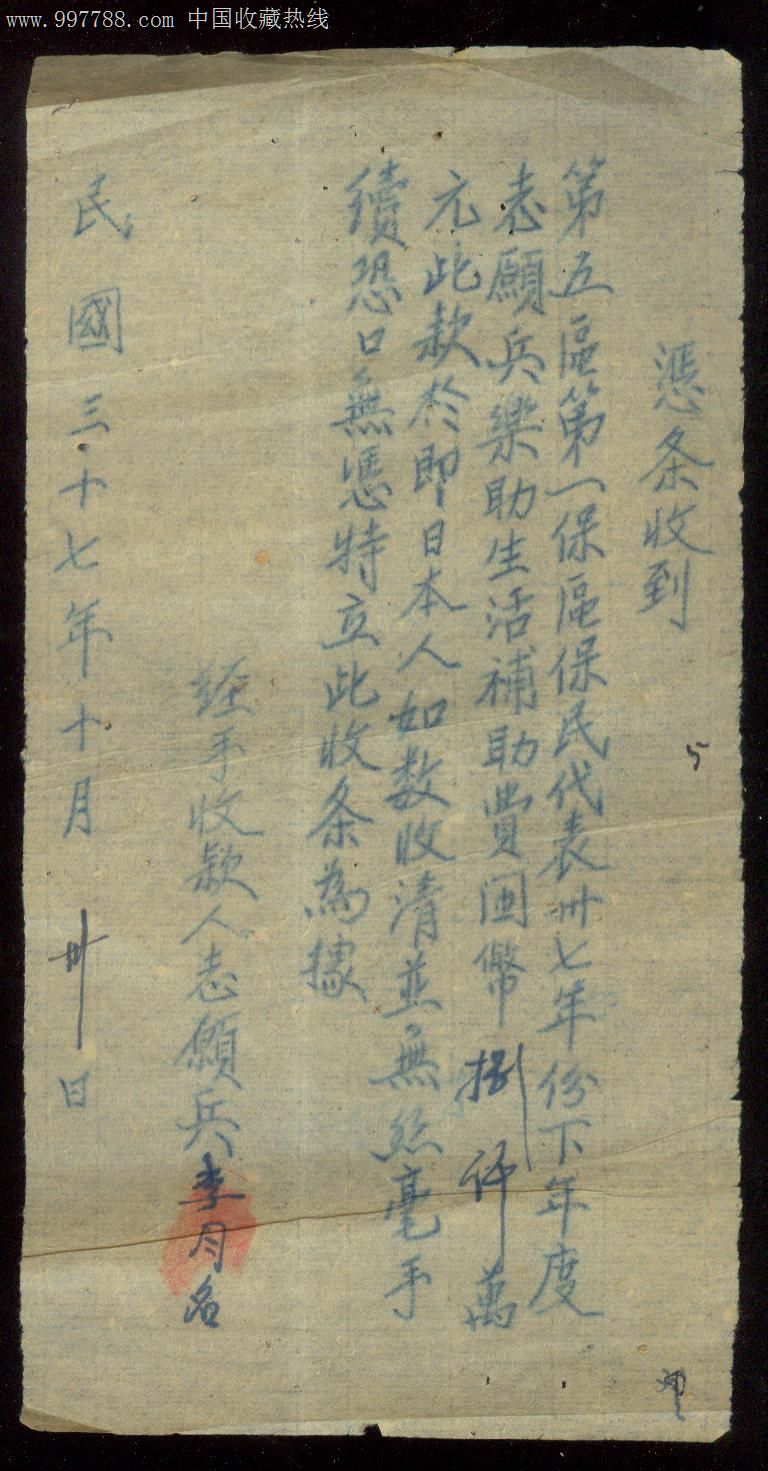 www.997788.com 中国收藏热线
憑条收到
第五區第一保區保民代表卅七年份下年度
志願兵樂助生活補助費国幣捌仟萬
元此款於即日本人如数收清並無絲毫手
續恐口無憑特立此收条為據
経手收款人志願兵李月名
民國三十七年十月卅日
5